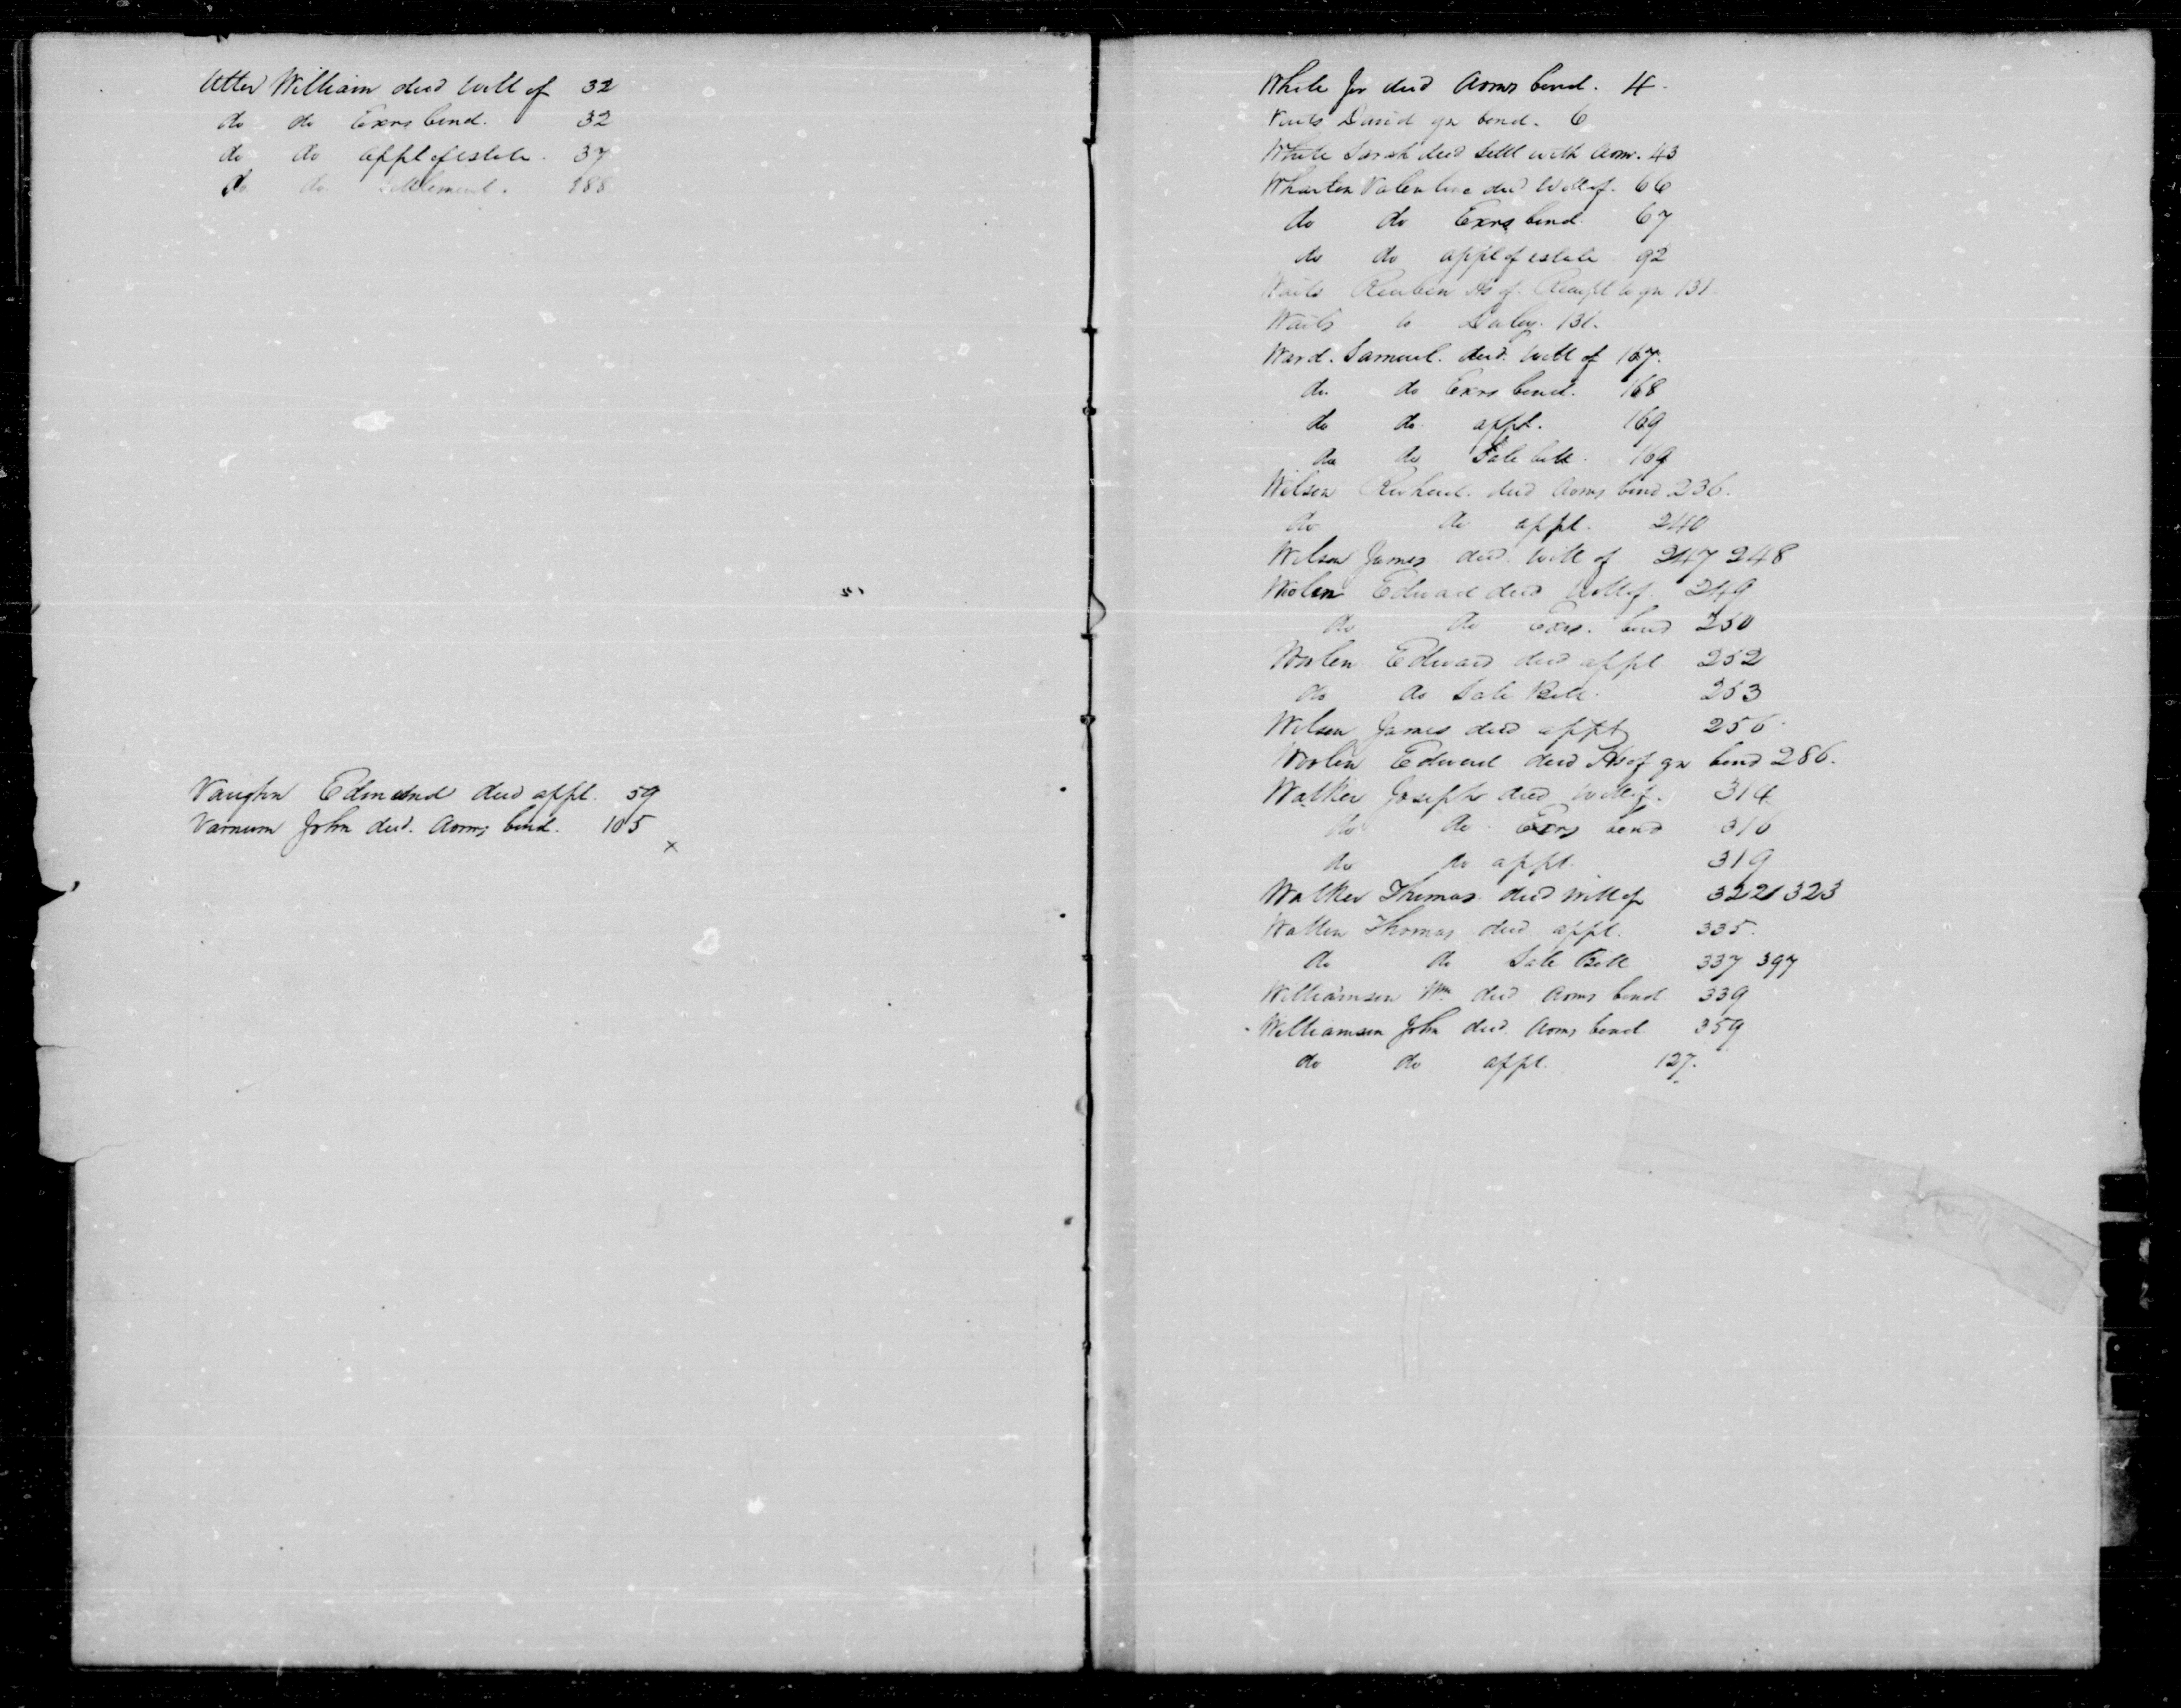 Utter William decd Will of 32
do do Exrs bond. 32
do do appt of estate. 37
do do settlement. 188
Vaughn Edmund decd appt. 59
Varnum John decd. Adms bond. 105
x
White Jno decd Adms bond. 4.
Waits David gn bond. 6
White Sarah decd Settl with Adm. 43
Wharton Valentine decd Will of. 66
do do Exrs bond. 67
do do appt of estate 92
Waits Reuben Hs of. Receipt to gn 131
Waits to 131.
Ward. Samuel. decd. Will of 167.
do. do Exrs bond. 168
do do appt. 169
do do Sale bill. 169
Wilson Richard. decd Adms bond 236.
do do appt. 240
Wilson James decd. Will of 247 248
Woolen Edward decd Will of. 249
do do Exrs. bond 250
Woolen Edward decd appt 252
do do Sale Bill. 253
Wilson James decd appt 256.
Woolen Edward decd Hs of gn bond 286.
Walker Joseph decd Will of. 314
do do Exrs bond 316
do do appt. 319
Walker Thomas decd Will of 322 323
Walker Thomas decd appt. 335.
do do Sale Bill 337 397
Williamson Wm decd Adms bond 339
Williamson John decd. Adms bond 359
do do appt. 127.